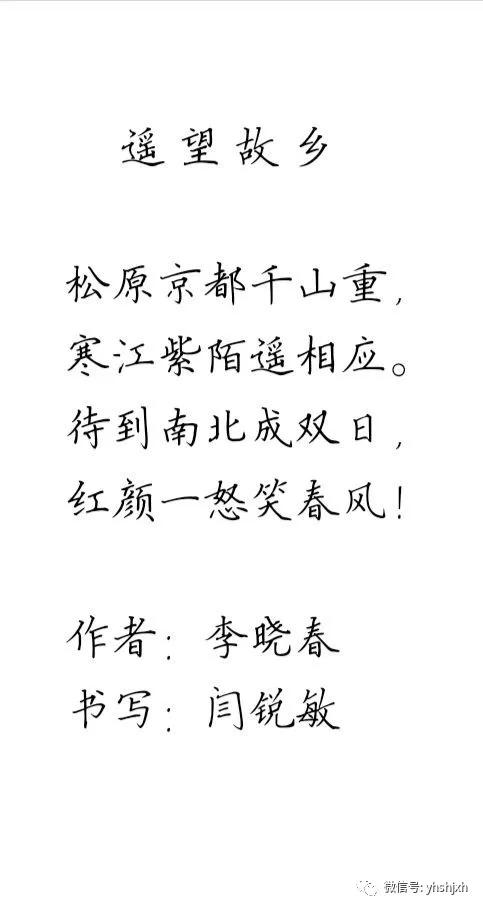 遥望故乡
松原京都千山重，
寒江紫陌遥相应。
待到南北成双日，
红颜一怒笑春风！
作者：李晓春
书写：闫锐敏
微信号: yhshjxh